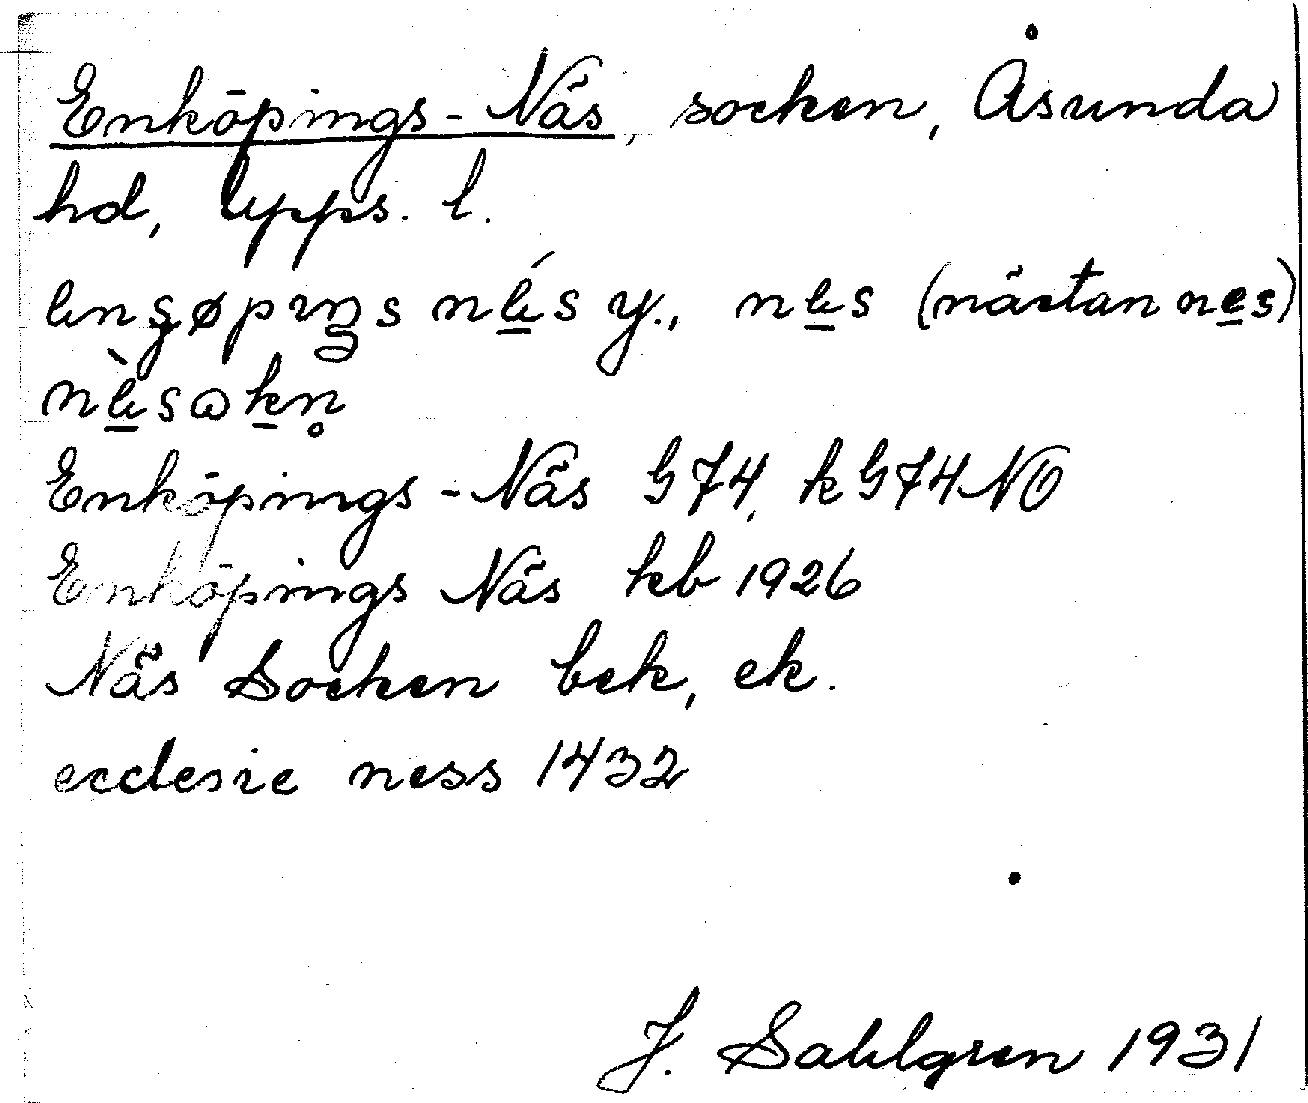 Enköpings-Näs, socken, Åsunda
hd, Upps. l.
nés y., nes (nästan nes)
Enköpings-Näs G74, kG74NO
Enköpings Näs kb 1926
Näs Socken bek, ek.
ecclesie ness 1432
J. Sahlgren 1931